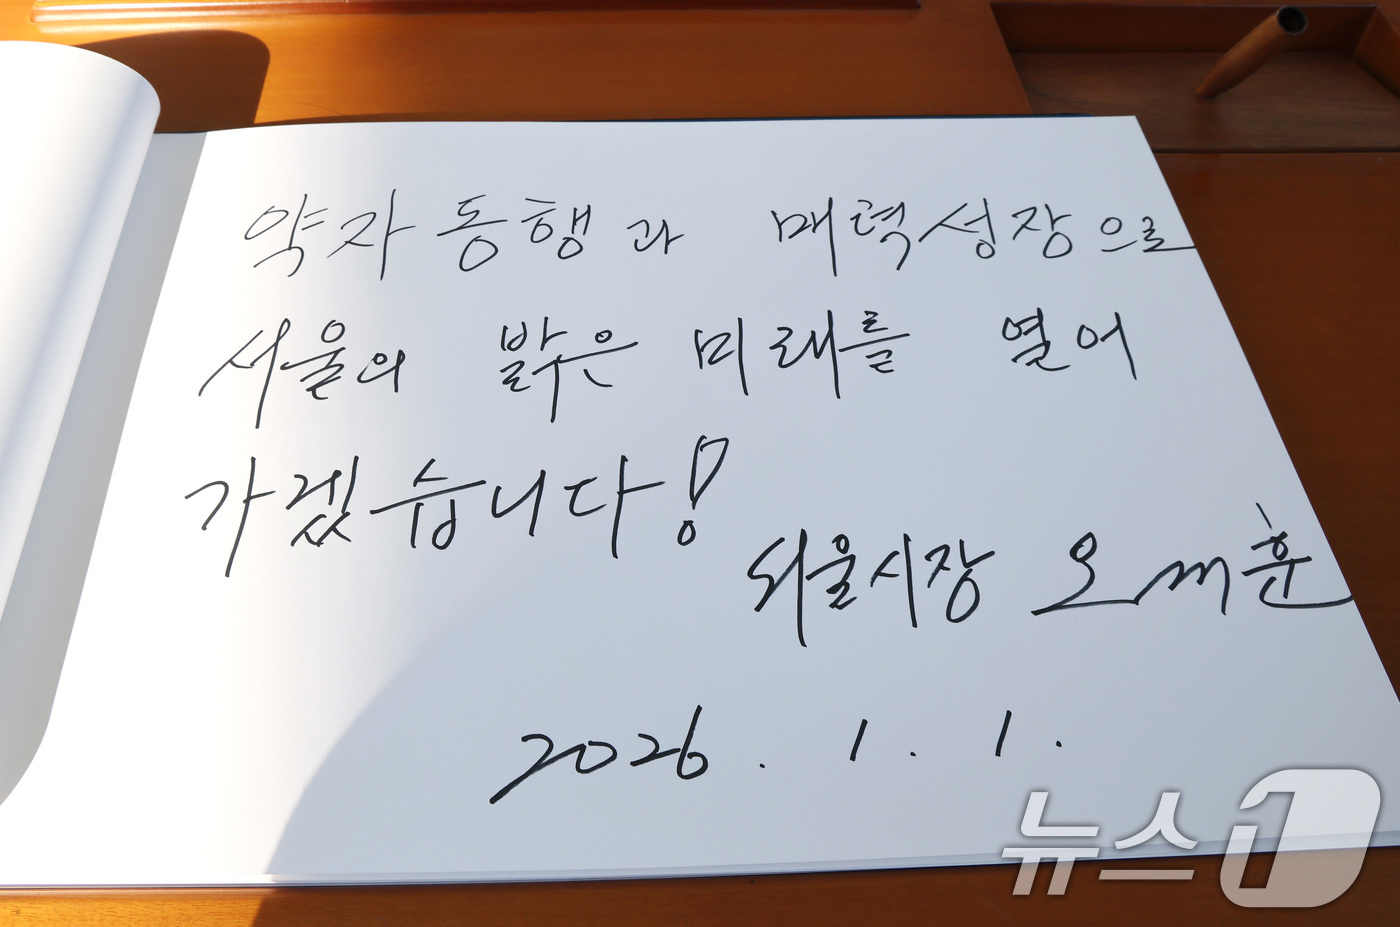 약자동행과 매력성장으로
서울의 밝은 미래를 열어
가겠습니다!
서울시장 오세훈
2026. 1. 1.
뉴스1